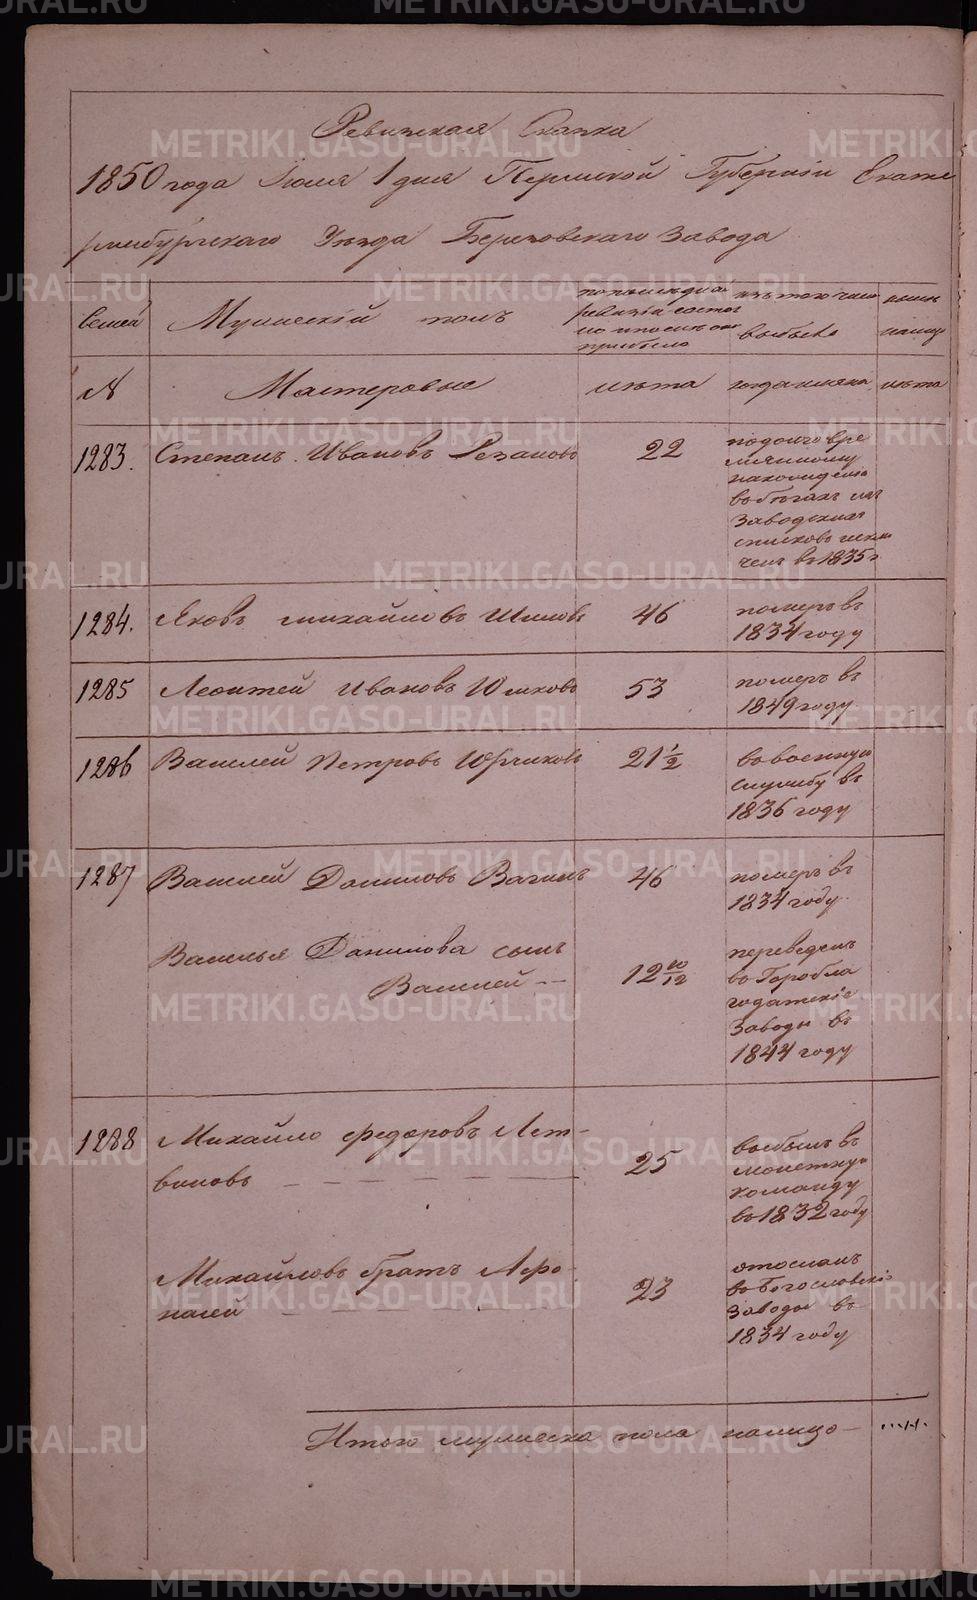 Ревижская Сказка
1850 года Июля 1 дня Пермской Губернiи Екате
ринбургскаго Уезда Березовскаго Завода
семей
Мужескiй полъ
по последней
ревизiи состоя
ло и после она
прибыло
изъ того числа
выбыло
ныне
налицо
№
Мастеровые
лѣта
когда имянно
лѣта
1283.
Степанъ Ивановъ Резановъ
22
по долговре
мянному
нахожденiю
въ бѣгахъ изъ
Заводскихъ
списковъ исклю
ченъ въ 1835 г
1284.
Яковъ Михайловъ Шиловъ
46
померъ въ
1834 году
1285
Леонтей Ивановъ
53
померъ въ
1849 году
1286
Василей Петровъ
21 1/2
въ военную
службу въ
1836 году
1287
Василей Даниловъ Вагинъ
46
померъ въ
1834 году
Василья Данилова сынъ
Василей --
12 10/12
переведенъ
въ Горобла
годатскiе
Заводы въ
1844 году
1288
Михайло Федоровъ Лет-
виновъ
25
выбылъ въ
монетную
команду
въ 1832 году
Михайловъ братъ Афо-
насей
23
отосланъ
въ Богословскiе
Заводы въ
1834 году
Итого мужеска пола налицо -
METRIKI.GASO-URAL.RU